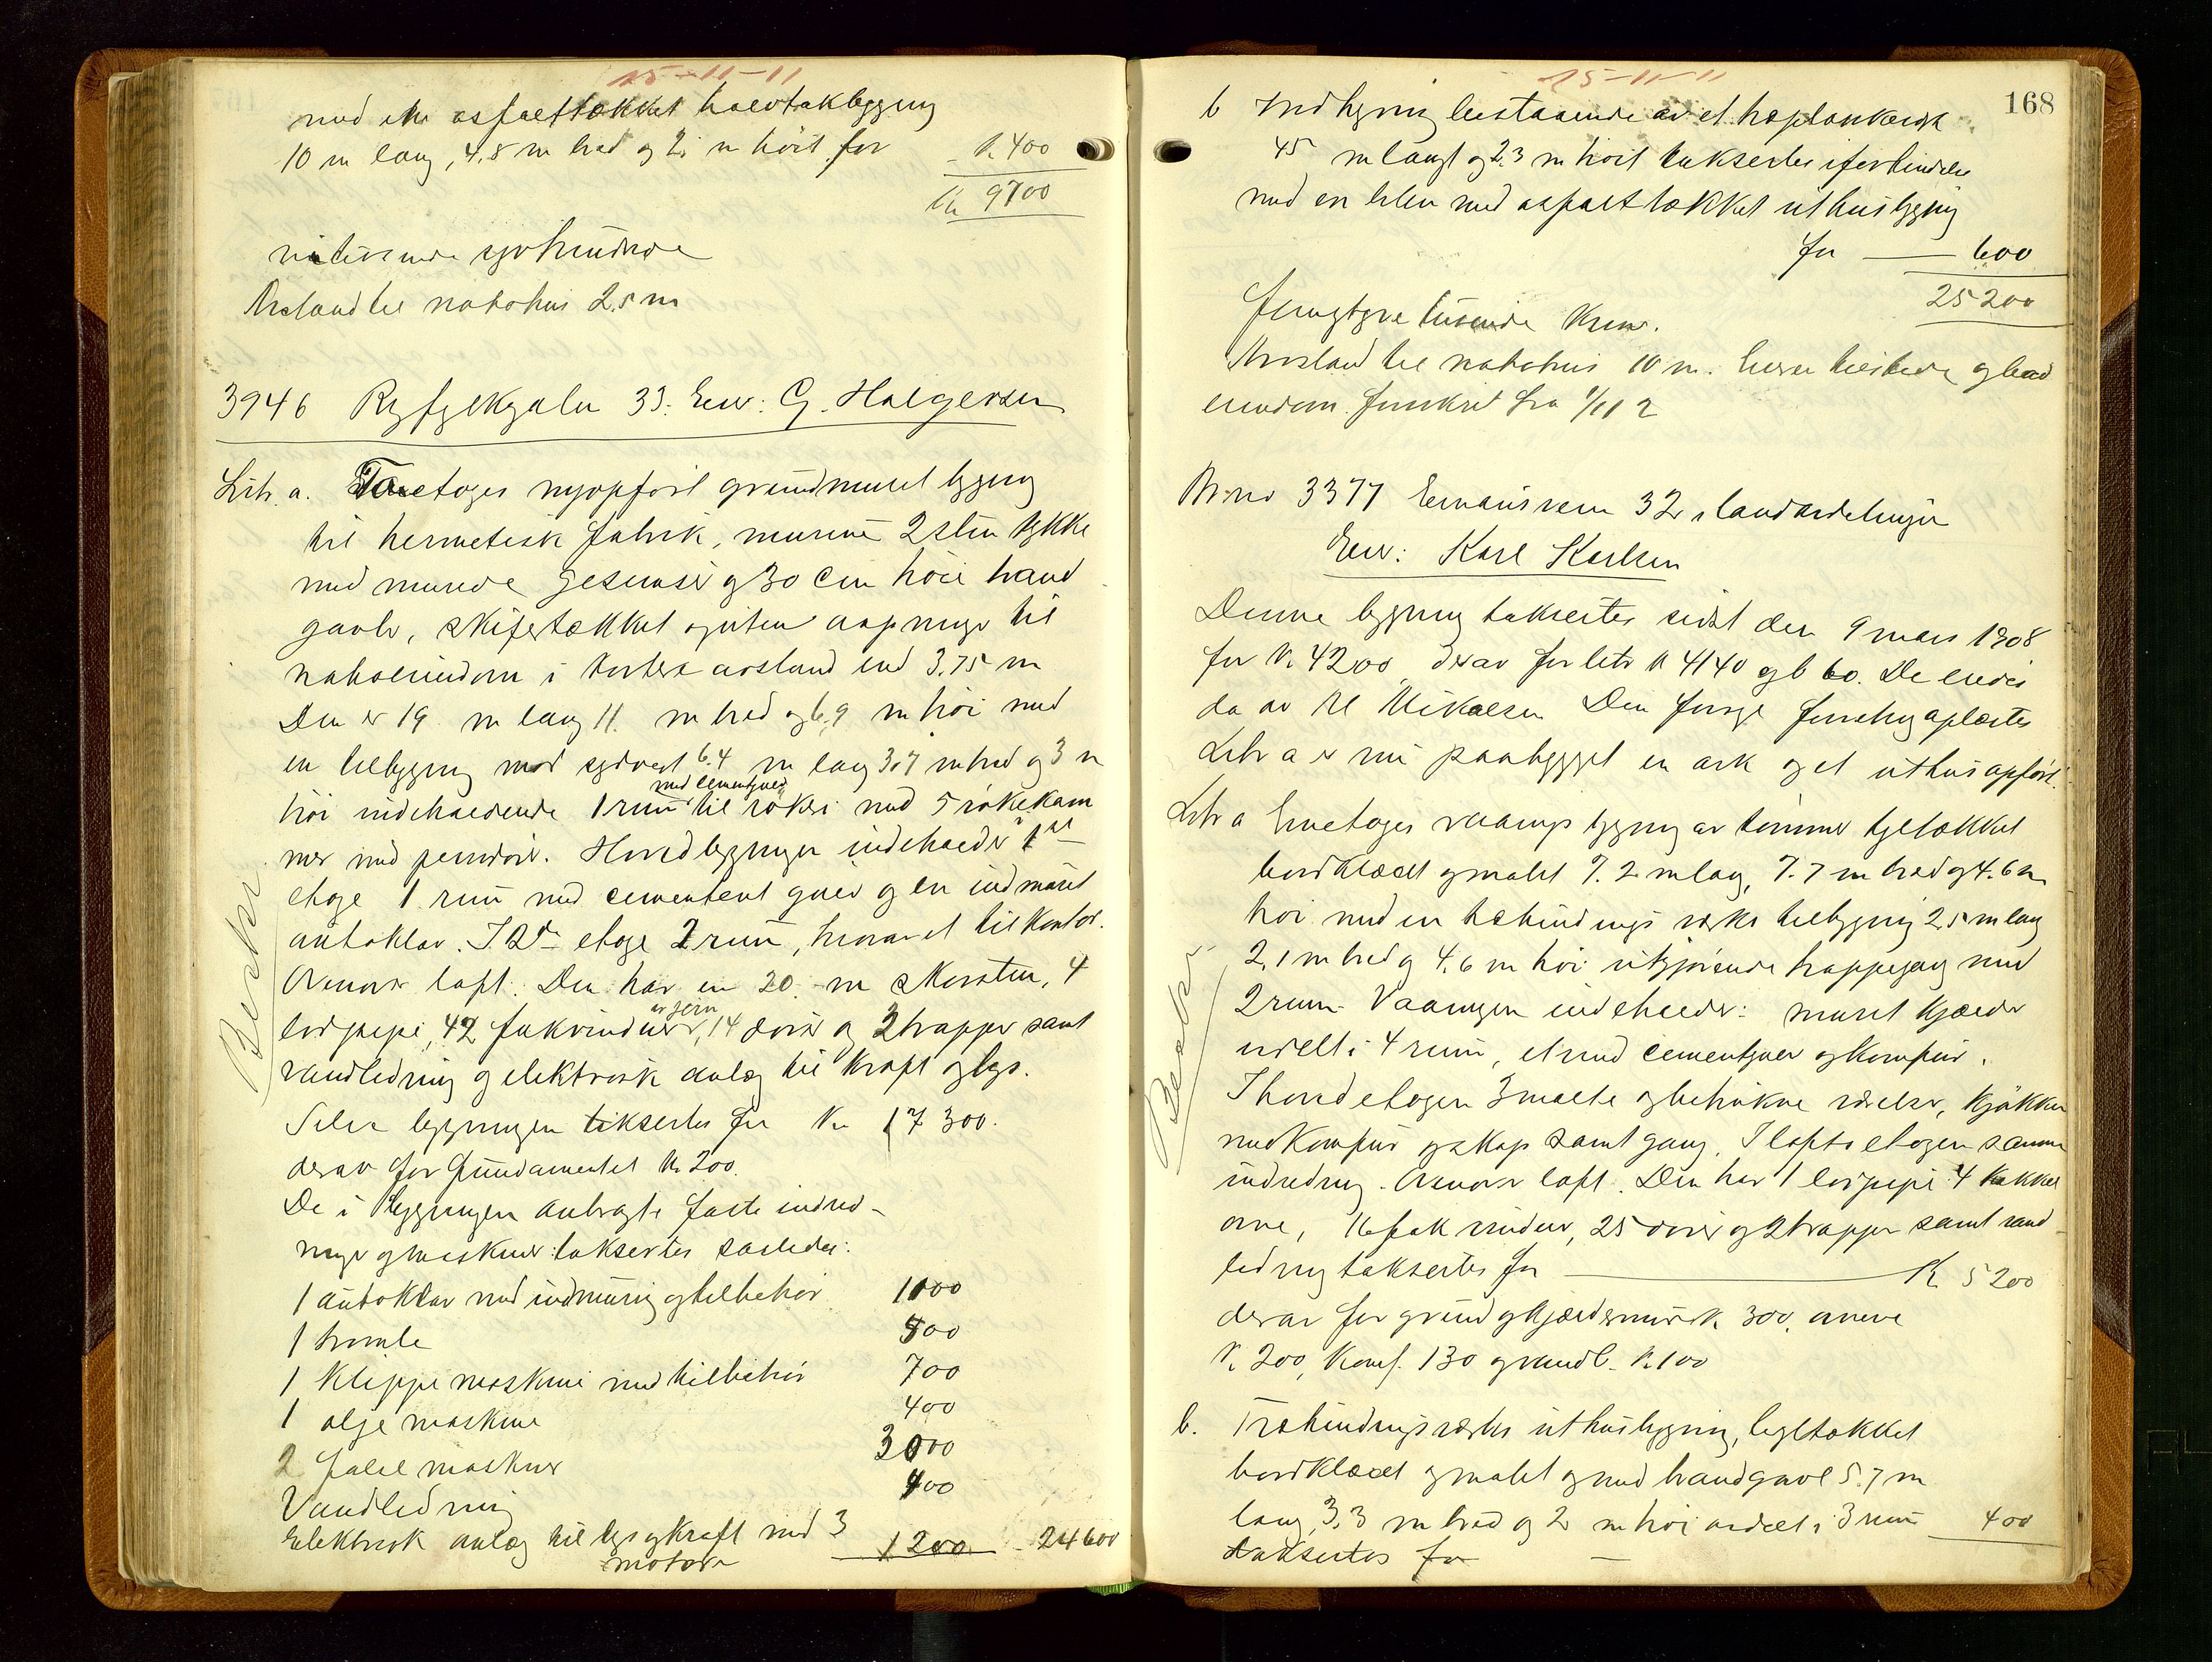 15-11-11
med en asfalttækket halvtakbygning
10 m lang, 4,8 m bred og 2, m høit for K. 400
Kr 9700
nitusende syvhundrede
Avstand til nabohus 2,5 m
3946 Ryfylkegaten 33. Eier: G. Halgersen
Litr. a. Toetages nyopført grundmuret bygning
til hermetisk fabrik, murene 2 sten tykke
med murede gesimser og 30 cm høie brand
gavle, skifertækket og uten aapninger til
naboeiendom i kortere avstand end 3.75 m
Den er 19 m lang 11 m bred og 6,9 m høi med
en tilbygning mot sydvest 6.4 m lang 3,7 m bred og 3 m
høi indeholdende 1 rum med cementgulv til røkeri med 5 røkekam
mer med jerndører. Hovedbygningen indeholder i 1ste
etage 1 rum med cementert gulv og en indmuret
autoklav. I 2den etage 2 rum, hvorav et til kontor.
Ovenover loft. Den har en 20 m skorsten, 4
lodpipe, 42 fakvinduer av jern, 14 dører og 2 trapper samt
vandledning og elektrisk anlæg til kraft og lys.
Selve bygningen takseres for Kr 17 300.
derav for fundamentet Kr 200.
De i bygningen anbragte faste indred-
ninger og maskiner takseres saaledes:
1 autoklav med indmuring og tilbehør 1100
1 tromle 500
1 klippemaskine med tilbehør 700
1 olje maskine 400
2 false maskiner 3000
Vandledning 400
Elektrisk anlæg til lys og kraft med 3
motorer 1200 - 24600
Besiktet
15-11-11
168
b Indhegning bestaaende av et træplankeværk
45 m langt og 2,3 m høit takseres i forbindelse
med en liten med asfalt tækket uthusbygning
for 600
25200
Femogtyve tusende Kron.
Avstand til nabohus 10 m. Eieren tilstede og bad
eiendom. forsikret fra 1/11 12
Br.no 3377 Emausveien 32, landavdelingen
Eier: Karl Karlsen
Denne bygning takseertes sidst den 9 mars 1908
for K. 4200, derav for litr a 4140 og b 60. De eiedes
da av M Mikalsen Den forrige forretning oplæstes
Litr a er nu paabygget en ark og et uthus opført.
Litr a Enetages vaanings bygning av tømmer tgltækket
bordklædt og malet 7.2 m lang, 7.7 m bred og 4.6 m
høi med en træbindings verks tilbygning 2,5 m lang
2,1 m bred og 4,6 m høi utgjørende trappegang med
2 rum. Vaaningen indeholder: muret kjælder
indelt i 4 rum, et med cementgulv og komfur.
I hovedetagen 3 malte og betrukne værelser, kjøkken
med komfur og skap samt gang. I loftsetagen samme
indredning. Ovenover loft. Den har 1 lodpipe 4 kakkel
ovne, 16 fakvinduer, 25 dører og 2 trapper samt vand
ledning takseres for K 5200
derav for grund og kjældermur K. 300, ovnene
K. 200, Komf. 130 og vandl. K. 100
b. Træbindingsverks uthusbygning, tegltækket
bordklædt og malet og med brandgavl 5.7 m
lang, 3.3 m bred og 2 m høi avdelt i 3 rum
takseres for 400
Besiktet